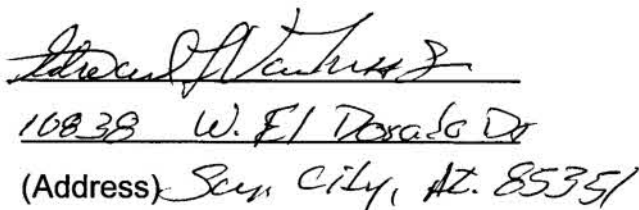 Edward J Van
10838 W. El Dorado Dr
(Address) Sun City, AZ. 85351